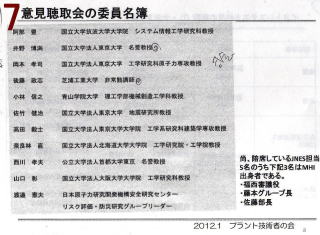 7 意見聴取会の委員名簿
阿部 豊 国立大学法人筑波大学大学院 システム情報工学研究科教授
井野 博満 国立大学法人東京大学 名誉教授
岡本 孝司 国立大学法人東京大学 工学研究科原子力専攻教授
後藤 政志 芝浦工業大学 非常勤講師
小林 信之 青山学院大学 理工学部機械創造工学科教授
佐竹 健治 国立大学法人東京大学 地震研究所教授
高田 毅士 国立大学法人東京大学大学院 工学系研究科建築学専攻教授
奈良林 直 国立大学法人北海道大学大学院 工学研究院・工学院教授
西川 孝夫 公立大学法人首都大学東京 名誉教授
山口 彰 国立大学法人大阪大学大学院 工学研究科教授
渡邉 憲夫 日本原子力研究開発機構安全研究センター
リスク評価・防災研究グループリーダー
尚、陪席しているJNES担当
5名のうち下記3名はMHI
出身者である。
・福西審議役
・藤本グループ長
・佐藤部長
2012.1 プラント技術者の会
8